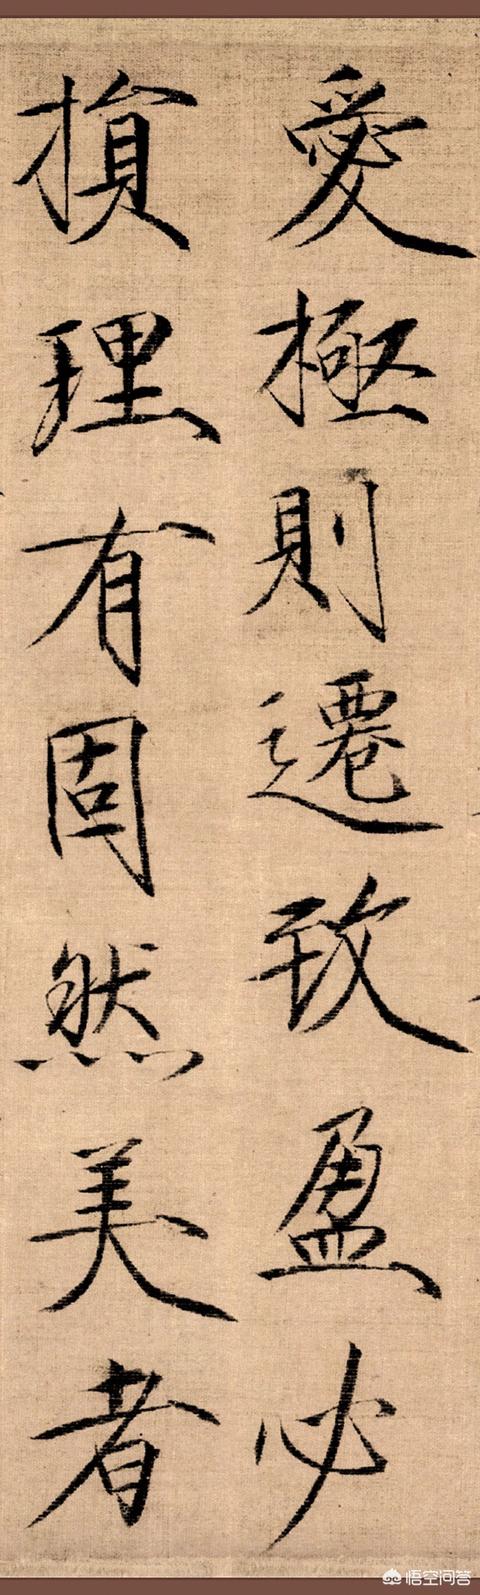 愛極則遷致盈必
損理有固然美者
悟空问答